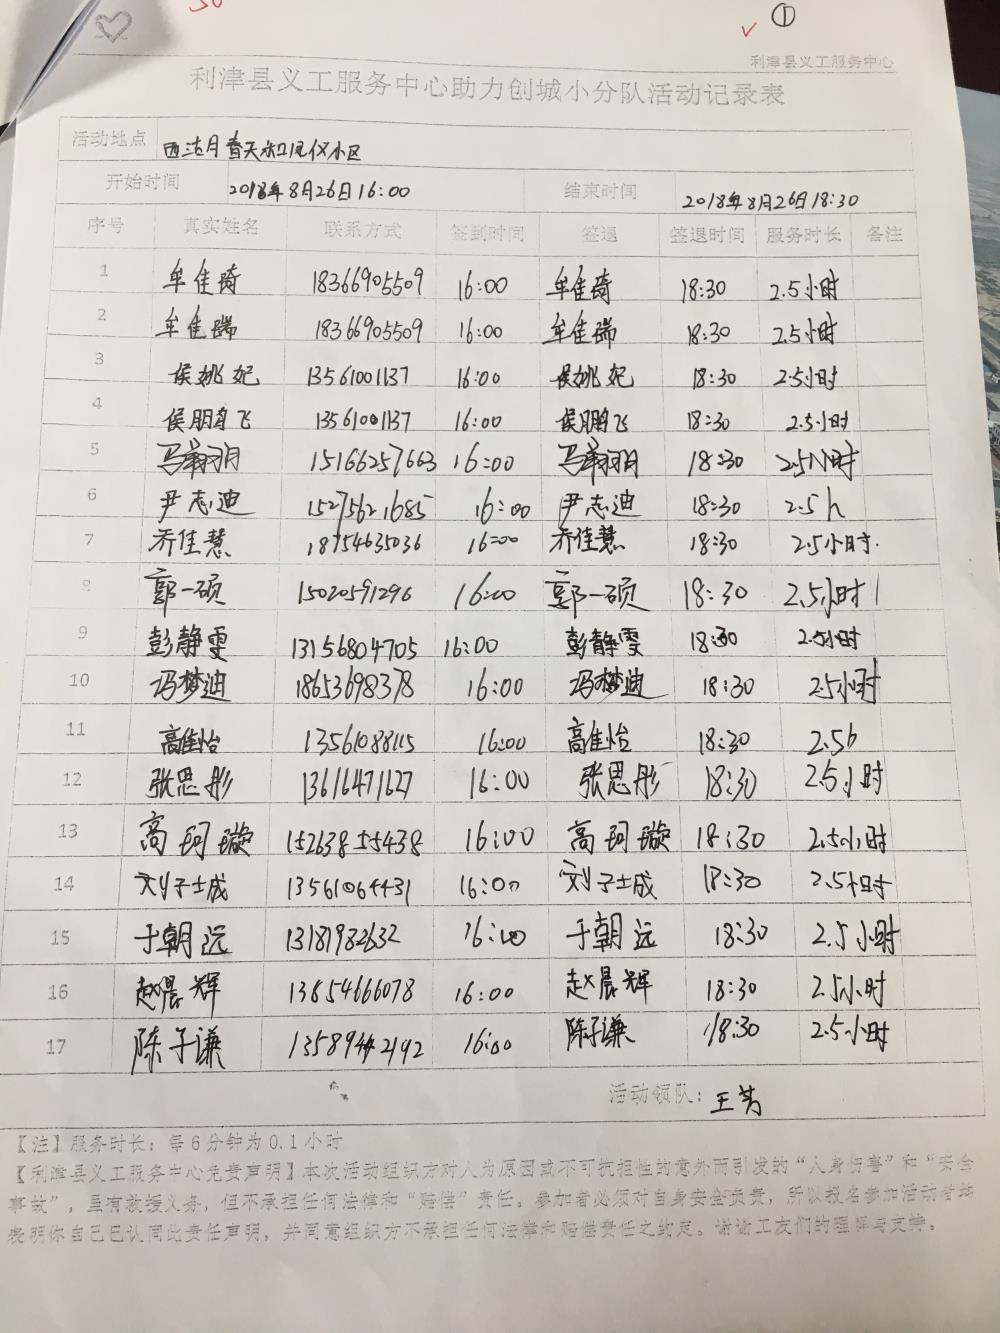 ①
利津县义工服务中心
利津县义工服务中心助力创城小分队活动记录表
活动地点 春天和凤仪小区
开始时间 2018年8月26日16:00 结束时间 2018年8月26日18:30
序号 真实姓名 联系方式 签到时间 签退 签退时间 服务时长 备注
1 牟佳琦 18366905509 16:00 牟佳琦 18:30 2.5小时
2 牟佳瑞 18366905509 16:00 牟佳瑞 18:30 2.5小时
3 侯姚妃 13561001137 16:00 侯姚妃 18:30 2.5小时
4 侯鹏飞 13561001137 16:00 侯鹏飞 18:30 2.5小时
5 冯翔羽 15166257663 16:00 冯翔羽 18:30 2.5小时
6 尹志迪 15275621685 16:00 尹志迪 18:30 2.5h
7 乔佳慧 18754635036 16:00 乔佳慧 18:30 2.5小时.
8 郭一硕 15020591296 16:00 郭一硕 18:30 2.5小时
9 彭静雯 13156804705 16:00 彭静雯 18:30 2.5小时
10 冯梦迪 18653698378 16:00 冯梦迪 18:30 2.5小时
11 高佳怡 13561088115 16:00 高佳怡 18:30 2.5h
12 张思彤 13616471627 16:00 张思彤 18:30 2.5小时
13 高珂璇 15263855438 16:00 高珂璇 18:30 2.5小时
14 刘子城 13561064431 16:00 刘子城 18:30 2.5小时
15 于朝远 13181982632 16:00 于朝远 18:30 2.5小时
16 赵晨辉 13854666078 16:00 赵晨辉 18:30 2.5小时
17 陈子谦 13589442192 16:00 陈子谦 18:30 2.5小时
活动领队：王芳
【注】服务时长：每6分钟为0.1小时
【利津县义工服务中心免责声明】本次活动组织方对人为原因或不可抗拒性的意外而引发的“人身伤害”和“安全
事故”，且有救援义务，但不承担任何法律和“赔偿”责任。参加者必须对自身安全负责，所以报名参加活动者均
表明你自己已认同此责任声明，并同意组织方不承担任何法律和赔偿责任之约定。谢谢工友们的理解与支持。